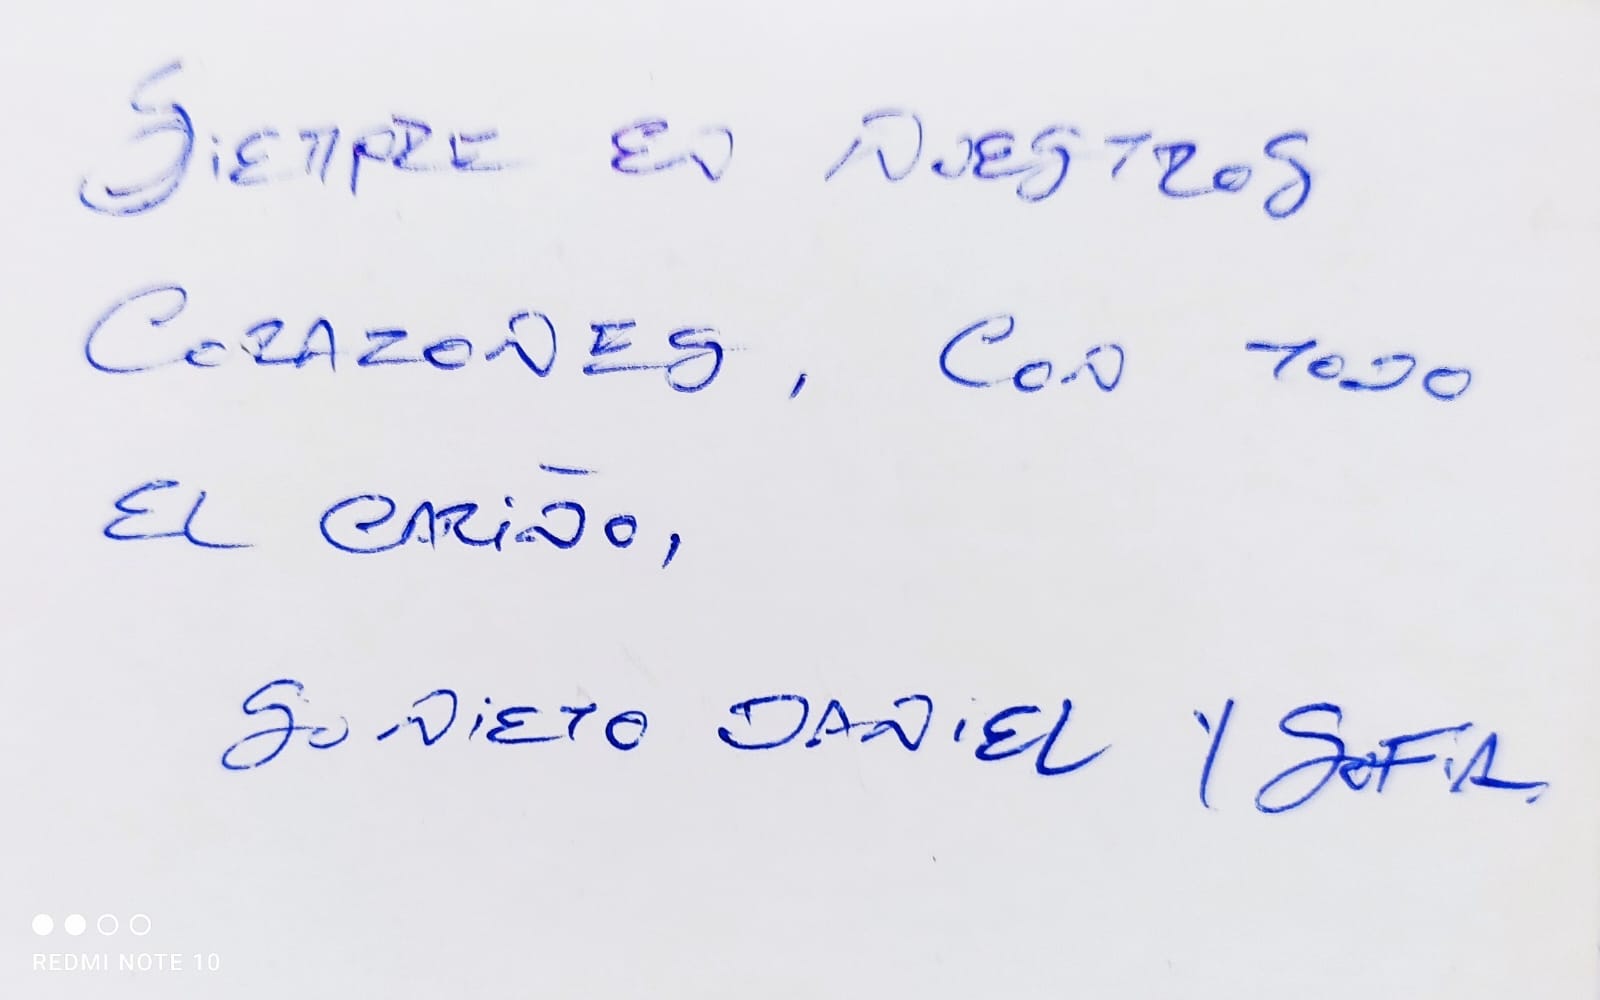 SIEMPRE EN NUESTROS
CORAZONES, CON TODO
EL CARIÑO,
SU NIETO DANIEL Y SOFIA.
REDMI NOTE 10